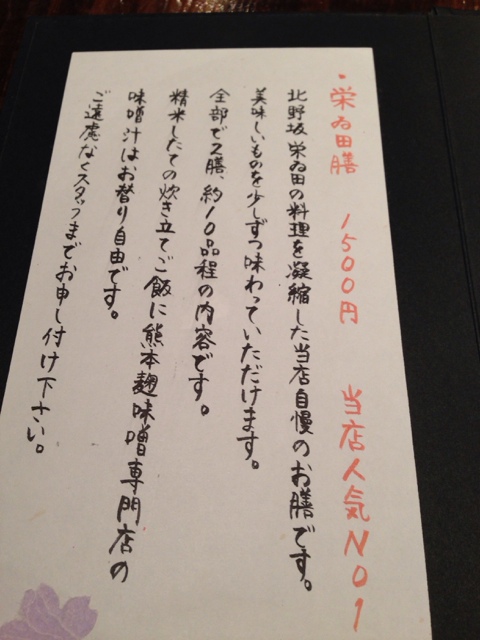 ・栄ゐ田膳 1500円 当店人気NO1
北野坂 栄ゐ田の料理を凝縮した当店自慢のお膳です。
美味しいものを少しずつ味わっていただけます。
全部で2膳、約10品程の内容です。
精米したての炊き立てご飯に熊本麹味噌専門店の
味噌汁はお替り自由です。
ご遠慮なくスタッフまでお申し付け下さい。